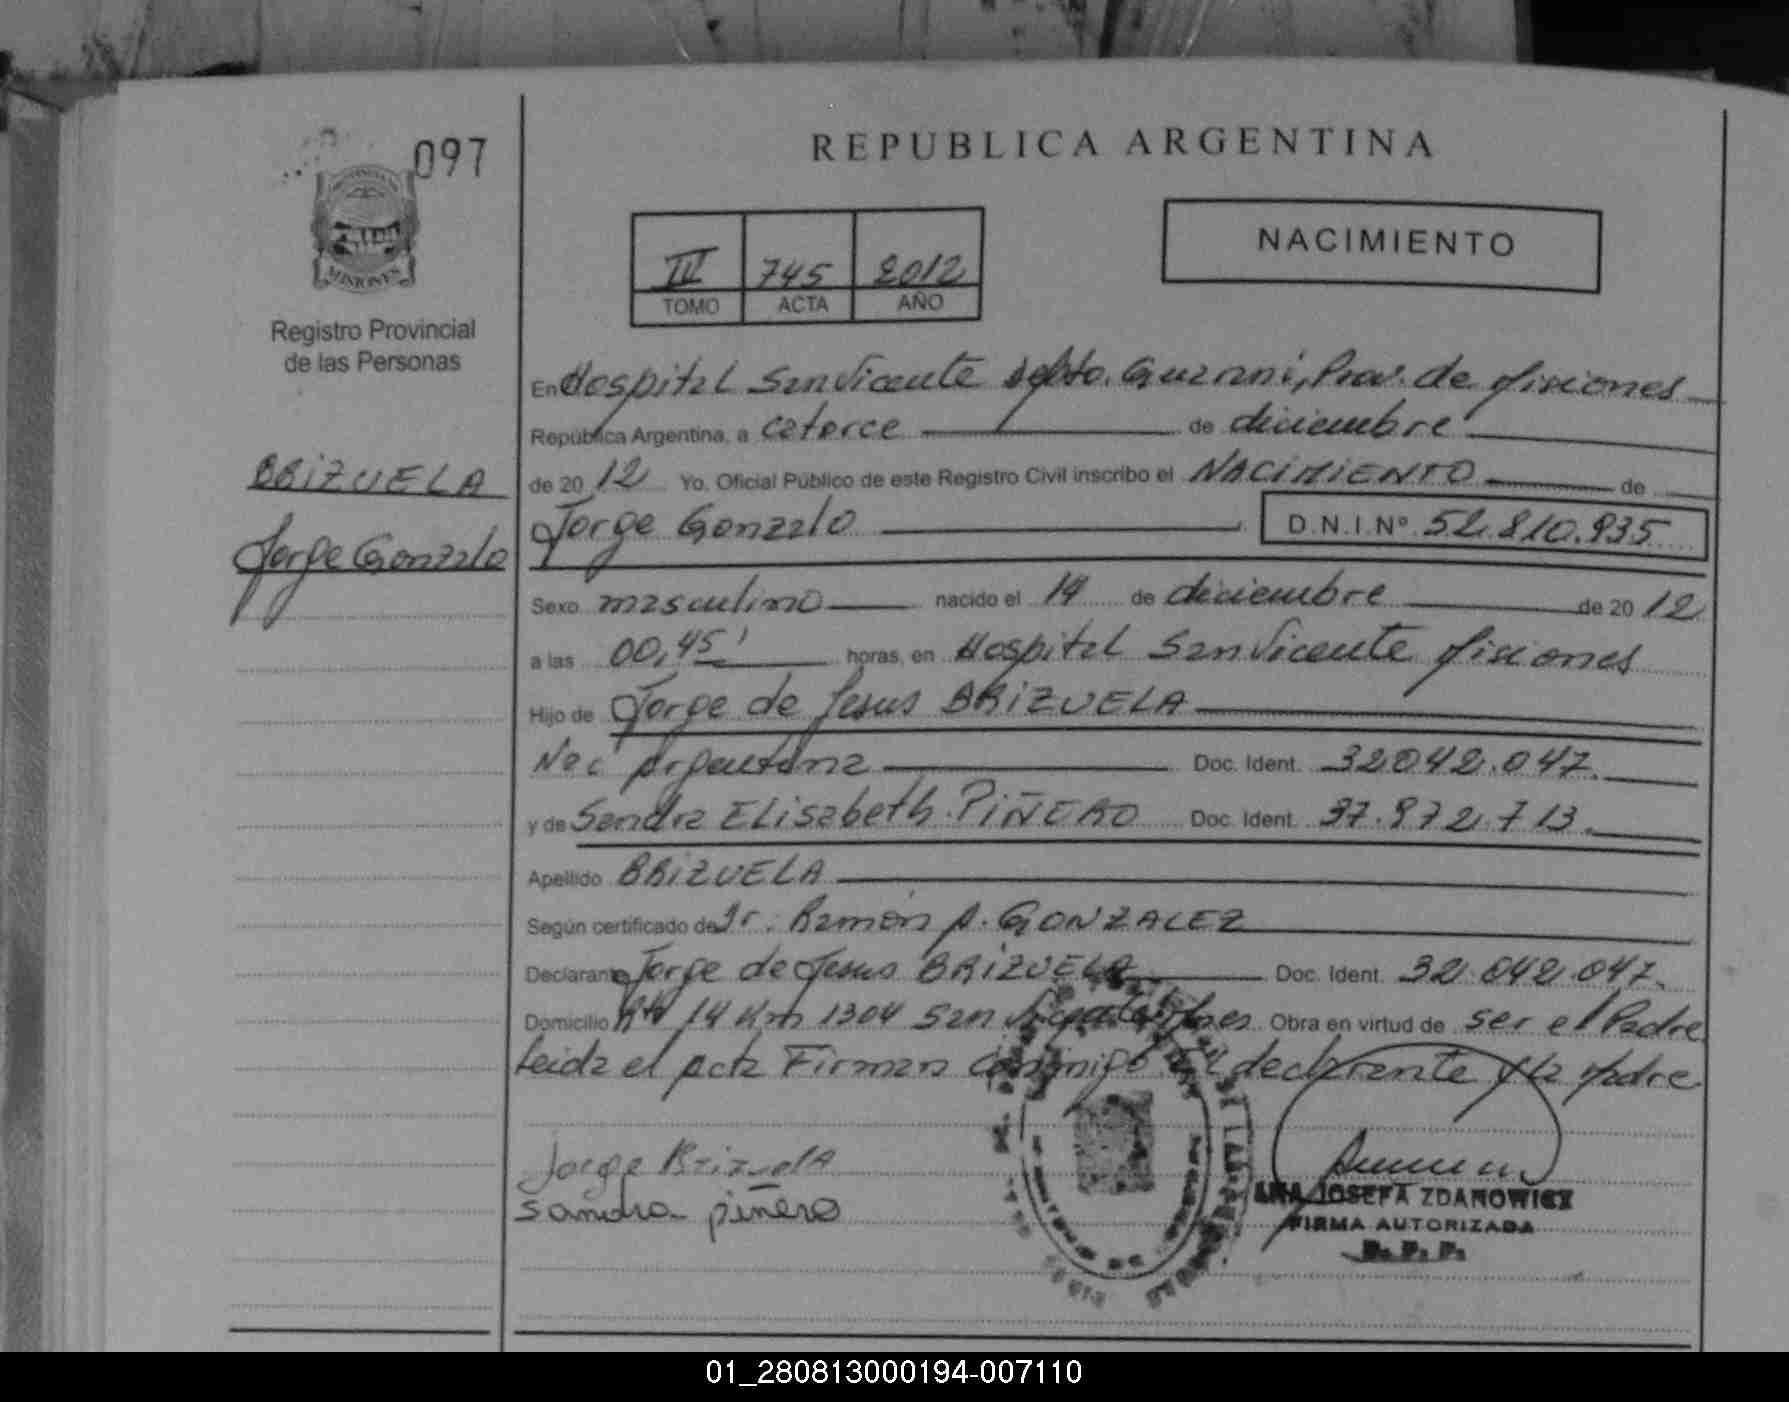 097
PROVINCIA DE
MISIONES
Registro Provincial
de las Personas
BRIZUELA
Jorge Gonzalo
REPUBLICA ARGENTINA
NACIMIENTO
III 745 2012
TOMO ACTA AÑO
En Hospital San Vicente Dpto. Guarani, Prov. de Misiones
República Argentina, a catorce de diciembre
de 2012 Yo, Oficial Público de este Registro Civil inscribo el NACIMIENTO de
Jorge Gonzalo D.N.I.Nº 52.810.935
Sexo masculino nacido el 14 de diciembre de 2012
a las 00,45' horas, en Hospital San Vicente Misiones
Hijo de Jorge de Jesus BRIZUELA
Nac Argentina Doc. Ident. 32042.047.
y de Sandra ELisabeth PIÑERO Doc. Ident. 37.972.713.
Apellido BRIZUELA
Según certificado de Dr. Ramón A. GONZALEZ
Declarante Jorge de Jesus BRIZUELA Doc. Ident. 32.042.047.
Domicilio Rta 14 Km 1304 San Vicente Obra en virtud de ser el Padre
Leida el Acta Firman conmigo El declarante y la Madre
Jorge Brizuela
Sandra piñero
ANA JOSEFA ZDANOWICZ
FIRMA AUTORIZADA
R. P. P.
01_280813000194-007110